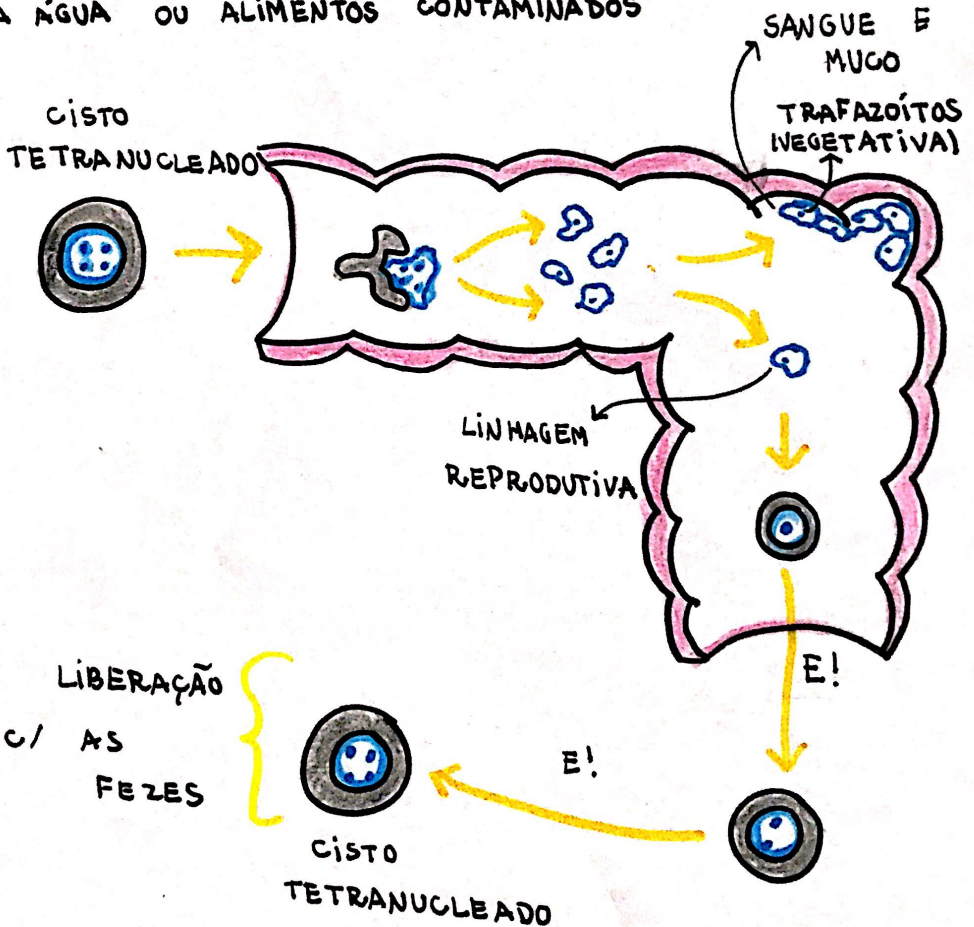 A ÁGUA OU ALIMENTOS CONTAMINADOS
SANGUE E
MUCO
TRAFAZOÍTOS
(VEGETATIVA)
CISTO
TETRANUCLEADO
LINHAGEM
REPRODUTIVA
E!
LIBERAÇÃO
C/ AS
FEZES
E!
CISTO
TETRANUCLEADO